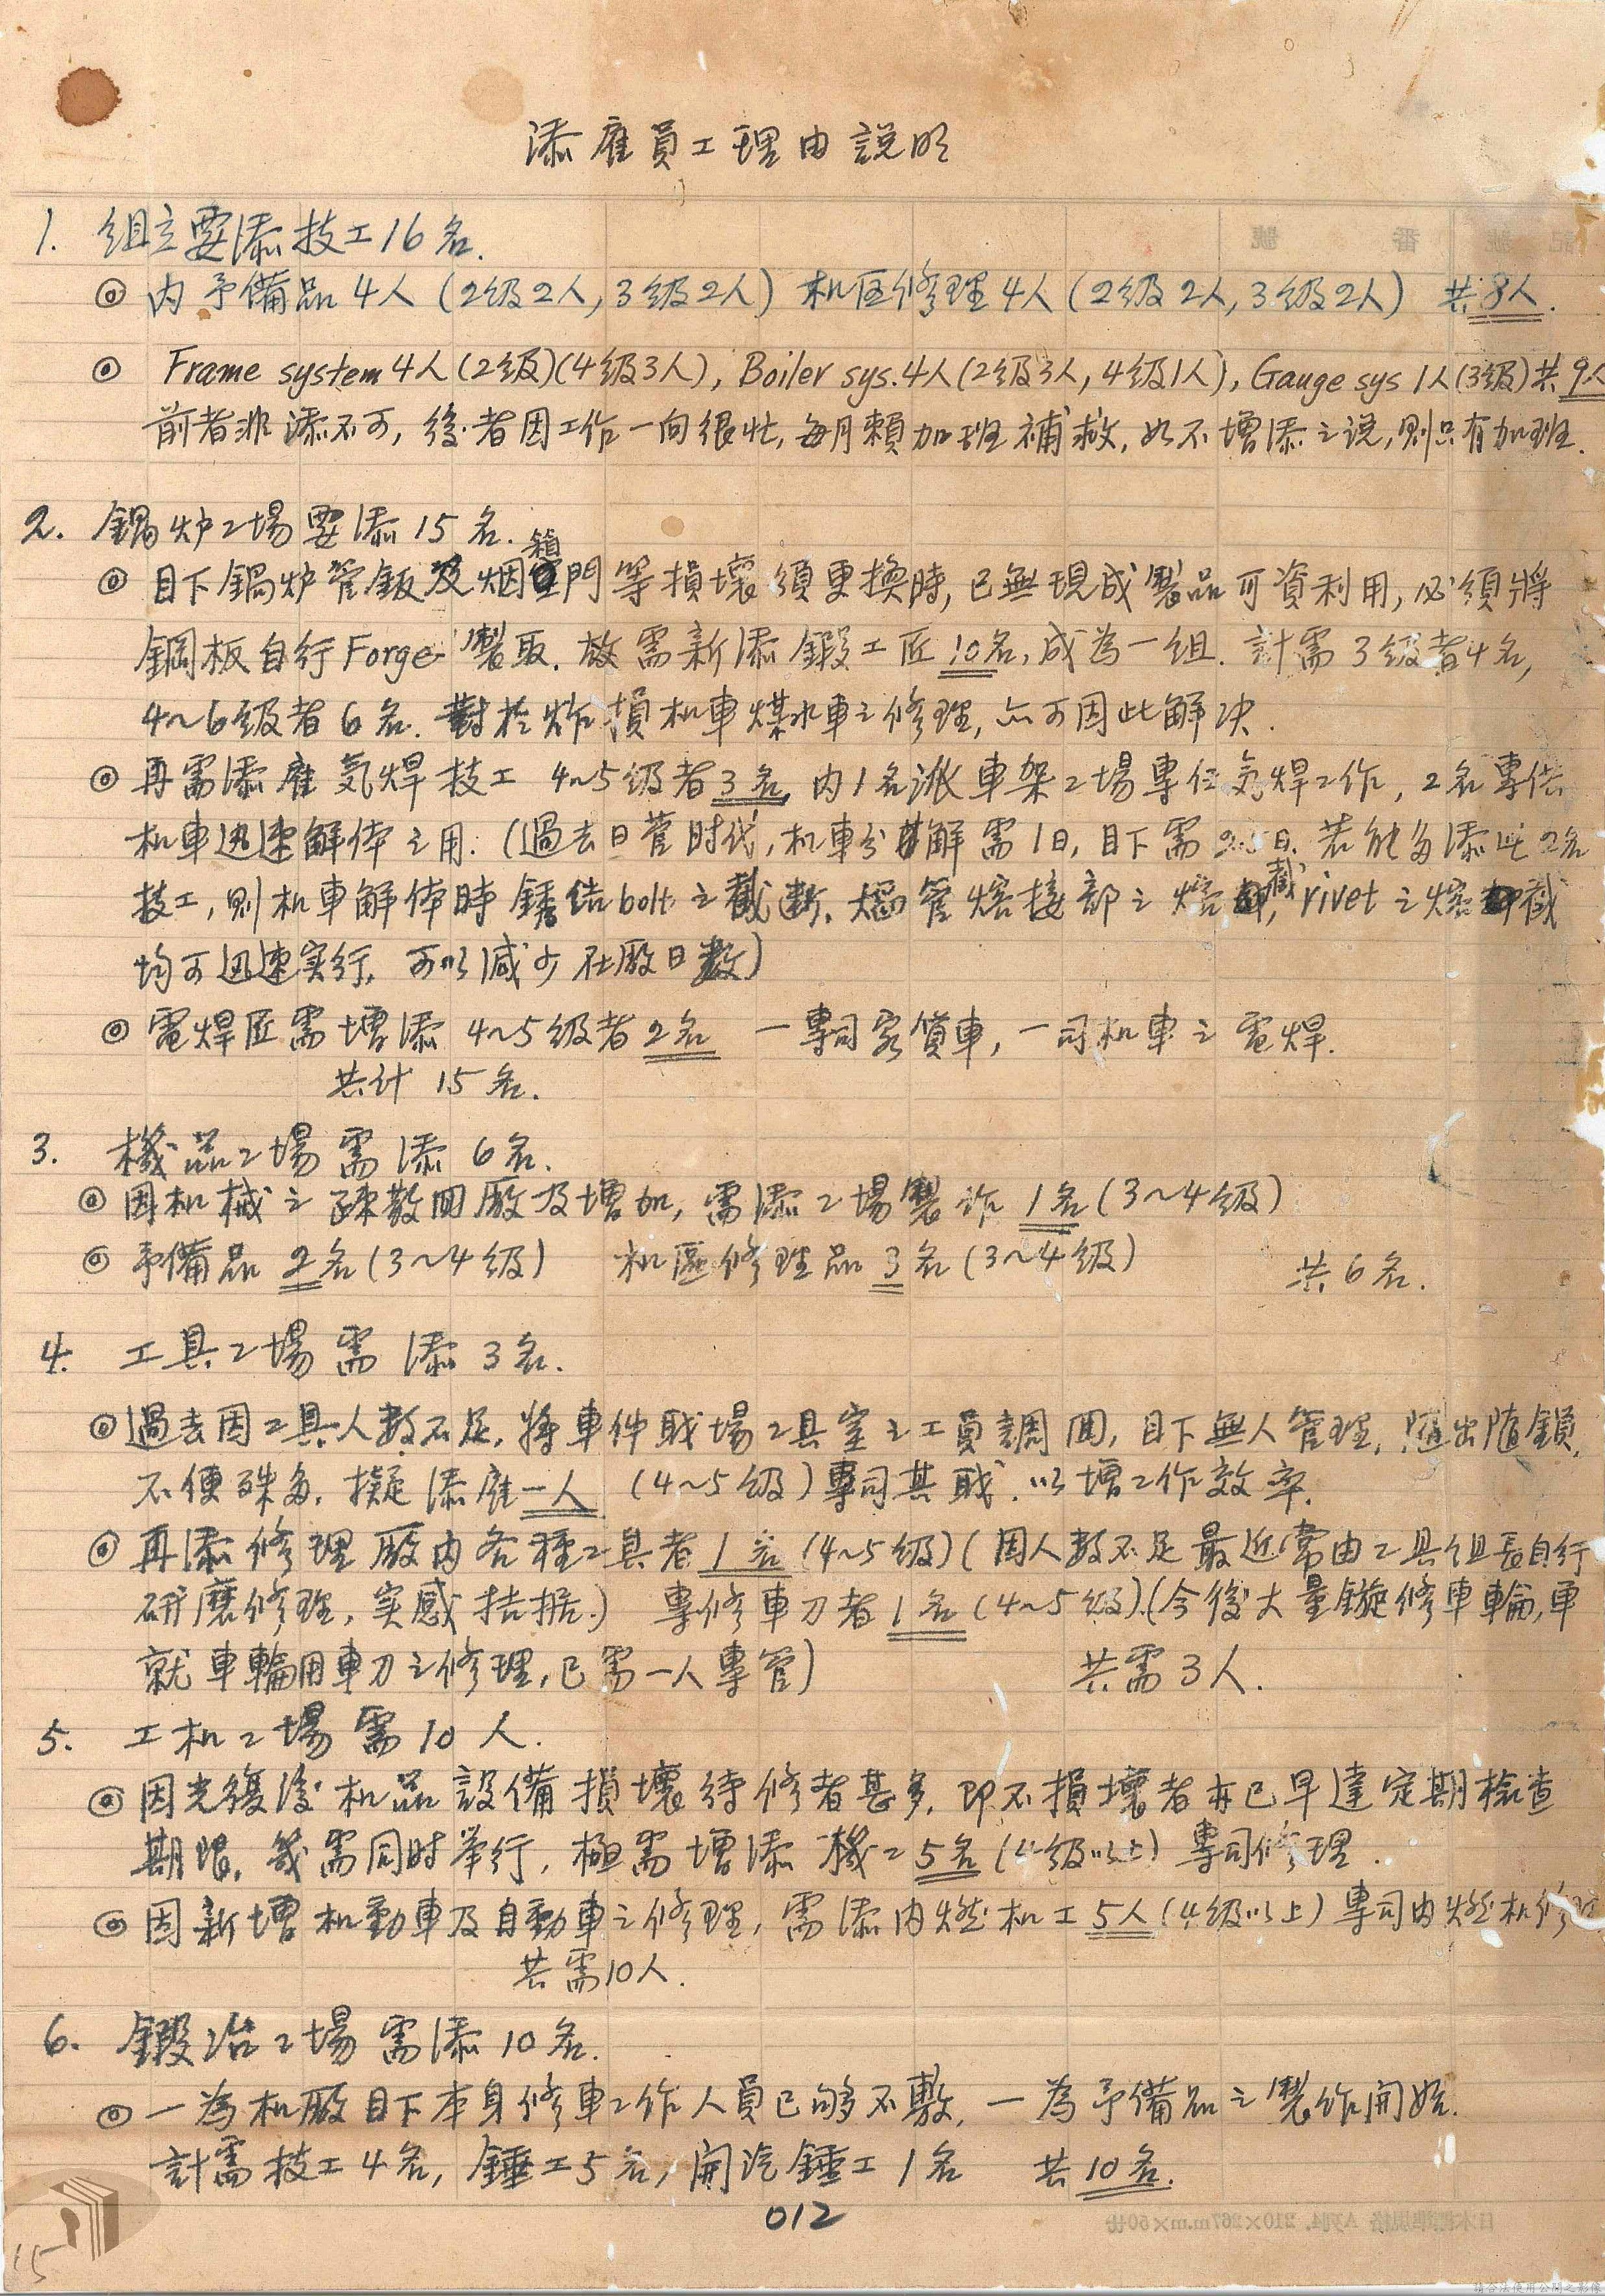 添雇員工理由說明
1. 組立要添技工16名.
◎ 内予備品4人(2級2人,3級2人) 机区修理4人(2級2人,3級2人) 共8人.
◎ Frame system 4人(2級)(4級3人), Boiler sys. 4人(2級3人, 4級1人), Gauge sys 1人(3級)共9人
前者非添不可, 後者因工作一向很忙, 每月賴加班補救, 如不增添之說, 則只有加班.
2. 鍋炉工場要添15名.
◎ 目下鍋炉管鈑及烟箱門等損壞須更換時, 已無現成製品可資利用, 必須將
鋼板自行Forge製取. 故需新添鍛工匠10名, 成為一組. 計需3級者4名,
4~6級者6名. 對於炸損机車煤水車之修理, 亦可因此解决.
◎ 再需添雇気焊技工 4~5級者3名, 内1名派車架工場專任気焊工作, 2名專供
机車迅速解体之用. (過去日管时代, 机車分解需1日, 目下需2.5日. 若能多添此2名
技工, 則机車解体時銹結bolt之截断. 烟管熔接部之熔截, rivet之熔截
均可迅速实行, 可以减少在廠日数)
◎ 電焊匠需增添 4~5級者2名 一專司客貨車, 一司机車之電焊.
共计 15名.
3. 機器工場需添 6名.
◎ 因机械之疎散囬廠及增加, 需添工場製作 1名(3~4級)
◎ 予備品 2名(3~4級) 机區修理品 3名(3~4級) 共6名.
4. 工具工場需添 3名.
◎ 過去因工具人数不足, 將車件职場工具室之工員調囬, 目下無人管理, 随出随鎖,
不便殊多, 擬添雇一人 (4~5級)專司其职. 以增工作效率.
◎ 再添修理廠内各種工具者1名(4~5級)(因人数不足最近常由工具組長自行
研磨修理, 实感拮据.) 專修車刀者1名(4~5級).(今後大量鏇修車輪, 車
就車輪用車刀之修理, 已需一人專管) 共需3人.
5. 工机工場需10人.
◎ 因光復後机器設備損壞待修者甚多, 即不損壞者亦已早達定期檢查
期限, 幾需同时举行, 極需增添機工5名(4級以上)專司修理.
◎ 因新增机動車及自動車之修理, 需添内燃机工5人(4級以上)專司内燃机修理
共需10人.
6. 鍛冶工場需添10名.
◎ 一為机廠目下本身修車工作人員已够不敷, 一為予備品之製作開始.
計需技工4名, 錘工5名, 開汽錘工1名 共10名.
012
15